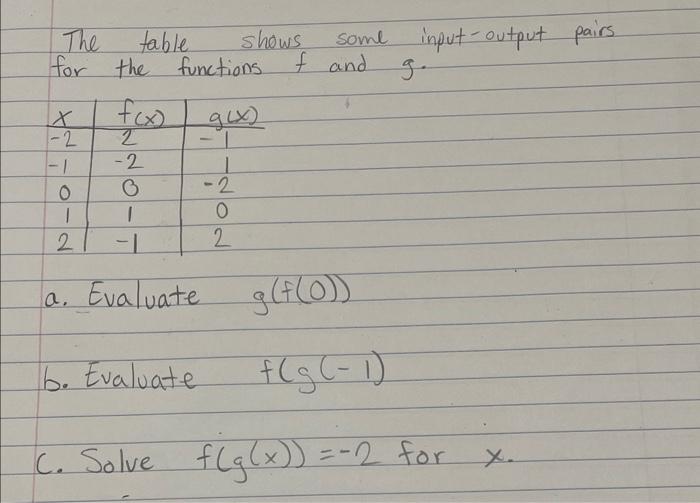 The table shows some input-output pairs
for the functions f and g.
x f(x) g(x)
-2 2 -1
-1 -2 1
0 0 -2
1 1 0
2 -1 2
a. Evaluate g(f(0))
b. Evaluate f(g(-1)
c. Solve f(g(x)) = -2 for x.